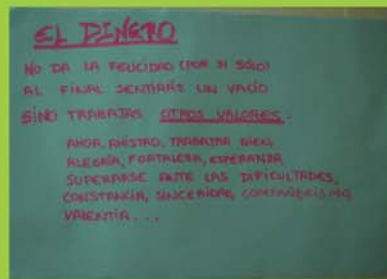 EL DINERO
NO DA LA FELICIDAD (POR SI SOLO)
AL FINAL SENTIRÁS UN VACÍO
SINO TRABAJAS OTROS VALORES.
AMOR, AMISTAD, TRABAJAR BIEN,
ALEGRÍA, FORTALEZA, ESPERANZA
SUPERARSE ANTE LAS DIFICULTADES,
CONSTANCIA, SINCERIDAD, COMPAÑERISMO
VALENTÍA...